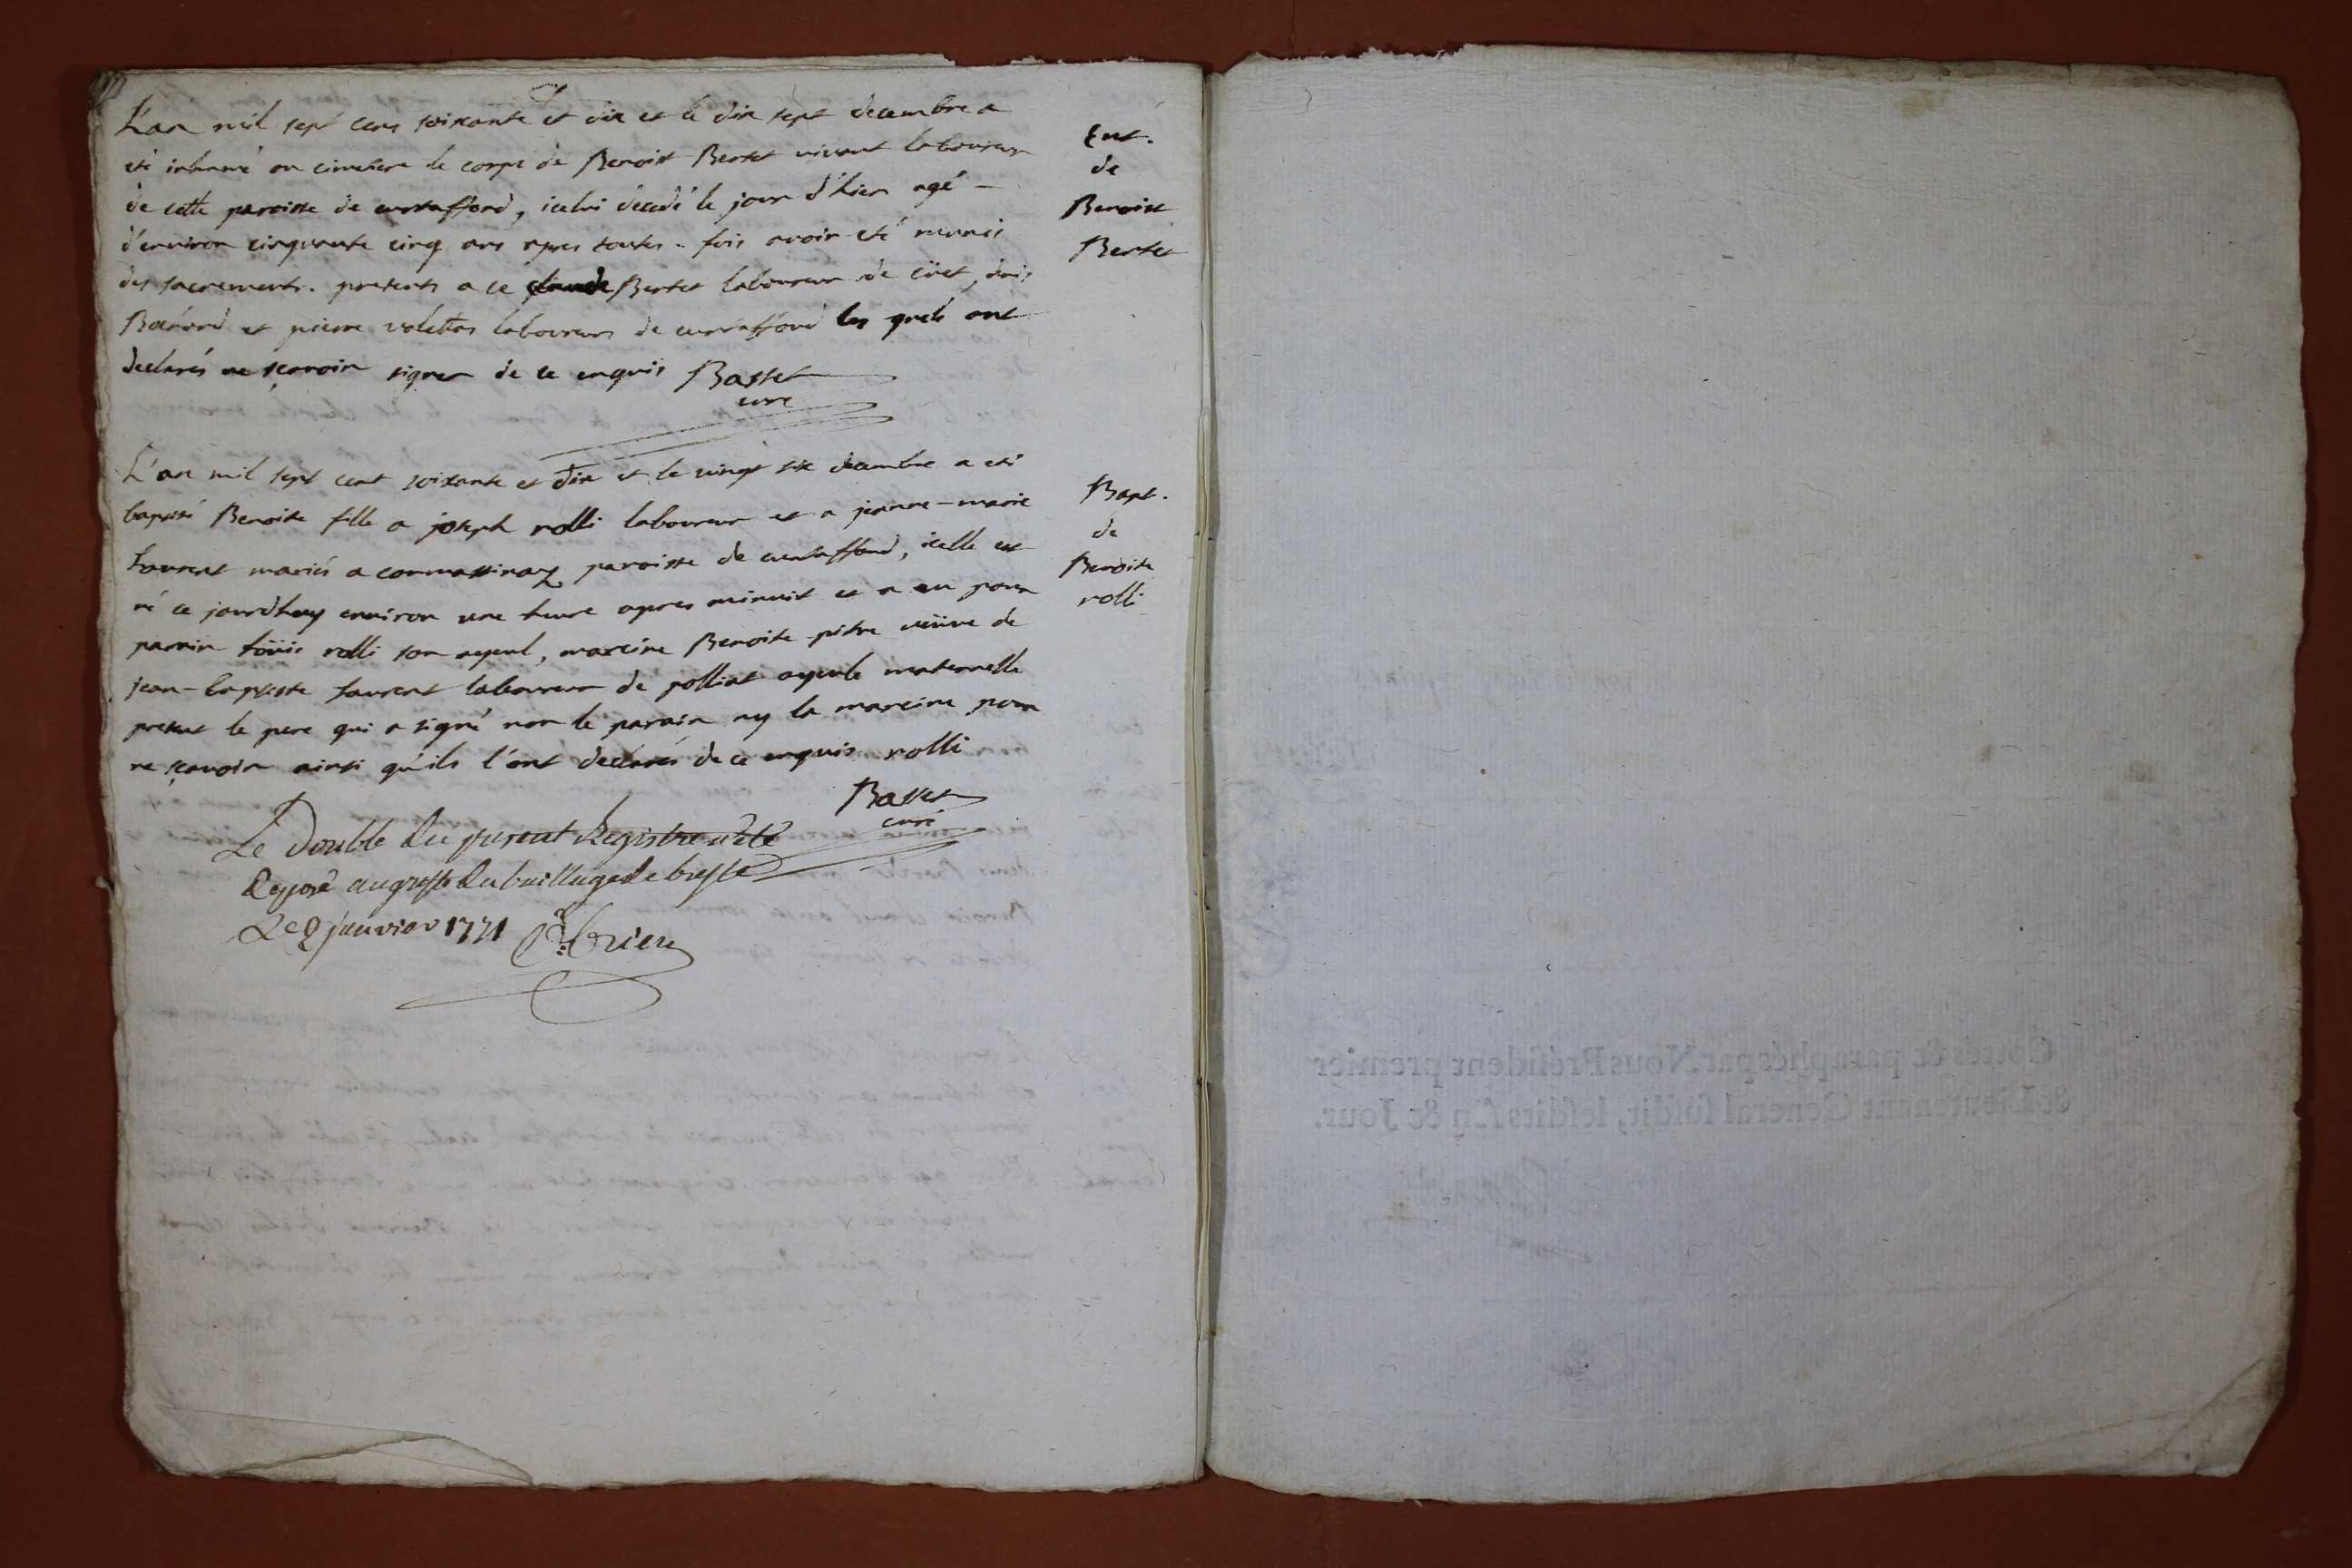 L'an mil sept cens soixante et dix et le dix sept decembre a
été inhumé au cimetiere le corps de Benoist Bertet vivant laboureur
de cette paroisse de curtaffond, icelui décedé le jour d'hier agé -
d'environ cinquante cinq ans apres toutes-fois avoir été munis
des sacrements. presents a ce claude Bertet laboureur de cüet, denis
et pierre laboureurs de curtaffond les quels ont
declarés ne sçavoir signer de ce enquis Basset
curé
Ent.
de
Benoist
Bertet
L'an mil sept cent soixante et dix et le vingt six decembre a eté
baptisé Benoite fille a joseph rolli laboureur et a jeanne-marie
Laurent mariés a cormassinaz paroisse de curtaffond, icelle est
né ce jourdhuy environ une heure apres minuit et a eu pour
parain loüis rolli son ayeul, mareine Benoite pitre veüve de
jean-baptiste Laurent laboureur de polliat ayeule maternelle
present le pere qui a signé non le parain ny la mareine pour
ne sçavoir ainsi qu'ils l'ont declarés de ce enquis rolli
Basset
curé
Bapt.
de
Benoite
rolli
Le Double du present Registre a été
deposé au greffe du baillage de bresse
Le 9 janvier 1771
Cottés & paraphés par Nous Président premier
& Lieutenant General susdit, lesdits An & Jour.